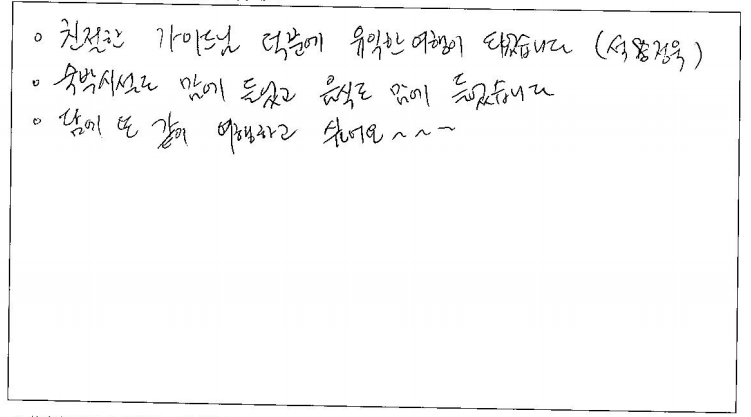 ◦ 친절한 가이드님 덕분에 유익한 여행이 되었습니다 (석 정욱)
◦ 숙박시설도 맘에 들었고 음식도 맘에 들었습니다
◦ 담에 또 같이 여행하고 싶어요~~~